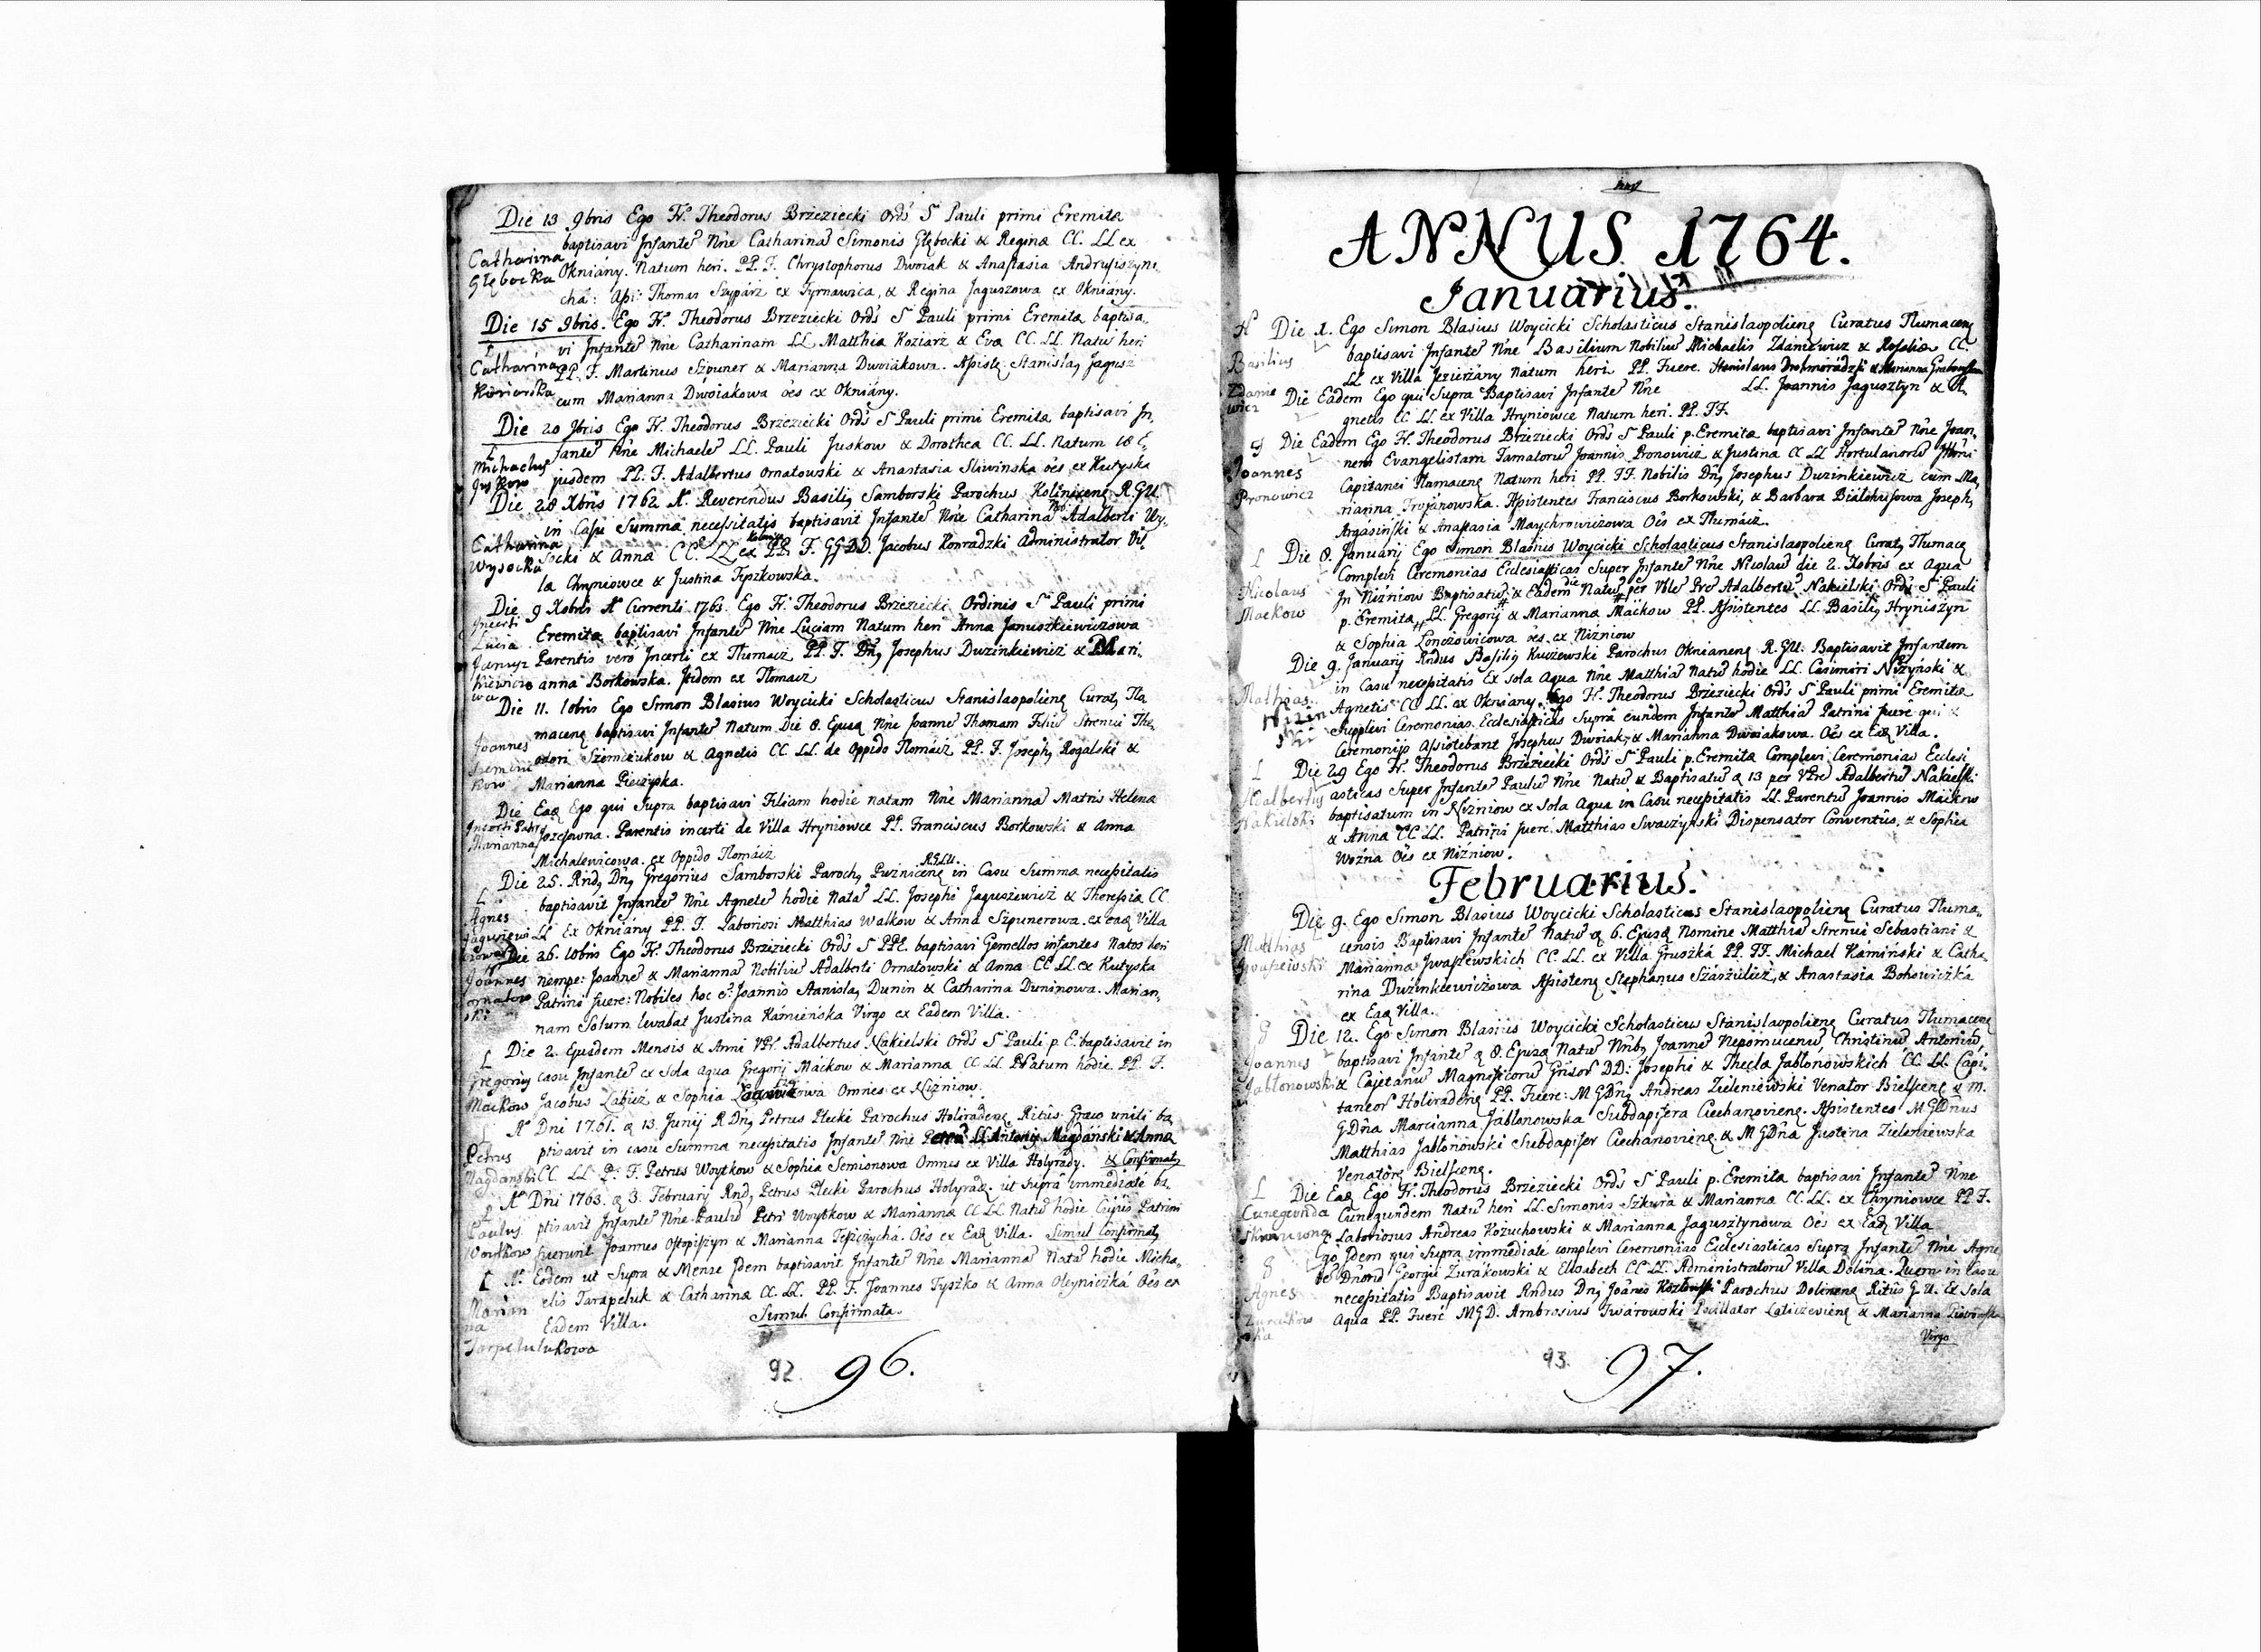 Die 13 9bris Ego Fr. Theodorus Brzeziecki Ords S Pauli primi Eremitæ
baptisavi Infante Nne Catharina Simonis Głębocki & Regina CC. LL ex
Catharina
Głębocka
Okniány. Natum heri. PP. F. Chrystophorus Dwoiak & Anastasia Andrusiszyn
chá: Assi: Thomas Szypárz ex Tyrnawica, & Regina Jaguszowa ex Okniány.
Die 15 9bris. Ego Fr. Theodorus Brzeziecki Ords S Pauli primi Eremitæ baptisa,,
vi Infante Nne Catharinam LL Matthiæ Koziarz & Eva CC. LL. Natu heri
L
Catharina
PP. F. Martinus Szpuner & Marianna Dwoiákowa. Assiste Stanislaq Jagusz
cum Marianna Dwoiakowa oes ex Okniány.
Die 20 Ego Fr. Theodorus Brzeziecki Ords S Pauli primi Eremitæ baptisavi In,
fante Nne Michaele LL. Pauli Juskow & Dorothea CC. LL. Natum 18 E,
Michaelus
Juskow
jusdem PP. F. Adalbertus Ornatowski & Anastasia Sliwinska oes ex Kutyska
Die 28 Xbris 1762 Reverendus Basiliq Samborski Parochus R.G.U.
in Casu Summæ necessitatis baptisavit Infante Nne Catharina Adalberti Wy,
Catharina
Wysocka
socki & Anna CC. LL ex PP. F. GG DD. Jacobus Konradzki Administrator Vil,
la Chryniowce & Justina
Die 9 Xobris A Currenti 1763. Ego Fr. Theodorus Brzeziecki Ordinis S Pauli primi
Incerti
Lucia
Eremitæ baptisavi Infante Nne Luciam Natum heri Anna Januszkiewiczowa
Parentis vero Incerti ex Tlumacz PP. F. Dnq Josephus Duzinkiewicz & Mari,
anna Borkowska. Itidem ex Tlomacz
Die 11. Ego Simon Blasius Woycicki Scholasticus Stanislaopolienq Curatq Tlu
macenq baptisavi Infante Natum Die 8. Ejusq Nne Joanne Thomam Filiu Strenui The,
Joannes
odori & Agnetis CC LL. de Oppido Tlomácz PP. F. Josephq Rogalski &
Marianna
Die Eaq Ego qui supra baptisavi Filiam hodie natam Nne Marianna Matris Helena
Incerti Patr
Marianna
Jozefowna. Parentis incerti de Villa Hryniowce PP. Franciscus Borkowski & Anna
Michalewicowa. ex Oppido Tlomácz
R.G.U.
Die 25. Rndq Dnq Gregorius Samborski Parochq in Casu Summa necessitatis
L
Agnes
baptisavit Infante Nne Agnete hodie Nata LL. Josephi Jaguszewicz & Theressia CC.
LL Ex Okniány PP. F. Laboriosi Matthias Walkow & Anna Szpunerowa. ex eaq Villa
Die 26. Ego Fr. Theodorus Brzeziecki Ords S PPE. baptisavi Gemellos infantes Natos heri
Joannes
nempe: Joanne & Marianna Nobiliu Adalberti Ornatowski & Anna CC LL. ex Kutyska
Patrini fuere: Nobiles hoc e Joannis Stanislaq Dunin & Catharina Duninowa. Marian,
nam Solum levabat Justina Kamieńska Virgo ex Eadem Villa.
Die 2. Ejusdem Mensis & Anni VPr. Adalbertus Nakielski Ords S Pauli p. E. baptisavit in
L
Gregoriq
Maćkow
casu Infante ex Sola aqua Gregorij Máckow & Marianna CC LL. Natum hodie PP. F.
Jacobus & Sophia Omnes ex Nizniow.
A Dni 1761. 13. Junij R Dnq Petrus Plecki Parochus Holiradenq Ritus Græco uniti ba,
L
Petrus
Magdański
ptisavit in casu summa necessitatis Infante Nne Petru LL Antonij Magdański & Anna
CC LL P. F. Petrus Woytkow & Sophia Semionowa Omnes ex Villa Holyrády. & Confirmatq
A Dni 1763. 3. February Rndq Petrus Plecki Parochus Holyradq. ut supra immediate ba,
Paulus
Woytkow
ptisavit Infante Nne Paulu Petri Woytkow & Marianna CC LL. Natu hodie Cujus Patrini
fuerunt Joannes Ostopiszyn & Marianna Oes ex Eaq Villa. Simul Confirmatq
A. Eodem ut Supra & Mense Idem baptisavit Infante Nne Marianna Nata hodie Micha,,
Marian
na
elis Tarapeluk & Catharina CC. LL. PP. F. Joannes Tyszko & Anna Oleyniczká Oes ex
Eadem Villa. Simul Confirmata.
92. 96.
ANNUS 1764.
Januarius.
Die 1. Ego Simon Blasius Woycicki Scholasticus Stanislaopolienq Curatus Tlumacenq
Basilius
baptisavi Infante Nne Basilium Nobiliu Michaelis Zdaniewicz & Rosaliæ CC.
LL ex Villa Jezierżany Natum heri PP. Fuere. Stanislaus & Marianna
Zdanie
wicz
Die Eadem Ego qui Supra Baptisavi Infante Nne LL. Joannis Jagusztyn & A,
gnetis CC LL. ex Villa Hryniowce Natum heri. PP. FF.
Die Eadem Ego Fr. Theodorus Brzeziecki Ords S Pauli p. Eremitæ baptisavi Infante Nne Joan,
nem Evangelistam Famatoru Joannis Pronowicz & Justina CC LL
Joannes
Pronowicz
Capitanei Tlumacenq Natum heri PP. FF. Nobilis Dnq Josephus Duzinkiewicz cum Ma,
rianna Trojánowska. Assistentes Franciscus Borkowski, & Barbara Josephq
& Anastasia Maychrowiczowa Oes ex Tlumácz.
L Die 8. Januarij Ego Simon Blasius Woycicki Scholasticus Stanislaopolienq Curatq Tlumacq
Complevi Ceremonias Ecclesiasticas Super Infante Nne Nicolau die 2. Xobris ex Aqua
Nicolaus
Mackow
In Nizniow Baptisatu & Eadem die Natu per Vble Pre Adalbertu Nakielski Ords S Pauli
p. Eremitæ LL. Gregorij & Marianna Maćkow PP. Assistentes LL. Basiliq Hryniszyn
& Sophia oes. ex Nizniow
Die 9. Januarij Rndus Basiliq Kuczewski Parochus Oknianenq R.G.U. Baptisavit Infantem
in Casu necessitatis Ex sola Aqua Nne Matthia Natu hodie LL. Casimiri Niżyński &
Mathias
Agnetis CC LL. ex Okniany. Ego Fr. Theodorus Brzeziecki Ords S Pauli primi Eremitæ
Supplevi Ceremonias Ecclesiasticas Supra eundem Infante Matthia Patrini fuere qui &
Ceremonijs Assistebant Josephus Dwoiak, & Marianna Dwoiakowa. Oes ex Eaq Villa.
L Die 29 Ego Fr. Theodorus Brzeziecki Ords S Pauli p. Eremitæ Complevi Ceremonias Ecclesi
Adalbertus
Nakielski
asticas Super Infante Paulu Nne Natu & Baptisatu 13 per VPre Adalbertu Nakielski
baptisatum in Nizniow ex Sola Aqua in Casu necessitatis LL. Parentu Joannis Máckow
& Anna CC LL. Patrini fuere. Matthias Swaczyński Dispensator Conventus, & Sophia
Woźna Oes ex Niżniow.
Februarius.
Die 9. Ego Simon Blasius Woycicki Scholasticus Stanislaopolienq Curatus Tluma,
Matthias
Iwaszewski
censis Baptisavi Infante Natu 6. Ejusq Nomine Matthia Strenui Sebastiani &
Marianna Iwaszewskich CC. LL. ex Villa Gruszká PP. FF. Michael Kámiński & Catha
rina Duzinkiewiczowa Assistenq Stephanus & Anastasia Bohowiczka
ex Eaq Villa.
Die 12. Ego Simon Blasius Woycicki Scholasticus Stanislaopolienq Curatus Tlumacenq
Joannes
Jabłonowski
baptisavi Infante 8. Ejusq Natu Nnbq Joanne Nepomucenu Christinu Antoniu,
& Cajetanu Magnificoru DD: Josephi & Thecla Jabłonowskich CC. LL. Capi,
taneor Holiradenq PP. Fuere: M GDnq Andreas Zieleniewski Venator Bielscenq & M.
GDna Marcianna Jabłonowska Subdapifera Ciechanovienq. Assistentes M GDnus
Matthias Jabłonowski Subdapifer Ciechanovienq & M GDna Justina Zieleniewska
Venatorq Bielscenq.
L Die Eaq Ego Fr. Theodorus Brzeziecki Ords S Pauli p. Eremita baptisavi Infante Nne
Cunegunda
Cunegundem Natu heri LL. Simonis Szkura & Marianna CC. LL. ex Chryniowce PP. F.
Laboriosus Andreas Kożuchowski & Marianna Jagusztynowa Oes ex Eaq Villa
Ego Idem qui Supra immediate complevi Ceremonias Ecclesiasticas Supra Infante Nne Agne
te Dnoru Georgii Żurákowski & Elisabeth CC LL. Administratoru Villa Dolina. Quem in Casu
Agnes
necessitatis Baptisavit Rndus Dnq Joánes Parochus Dolinenq Ritus G. U. Ex Sola
Aqua PP. Fuere MGD. Ambrosius Pocillator & Marianna
Virgo
93. 97.